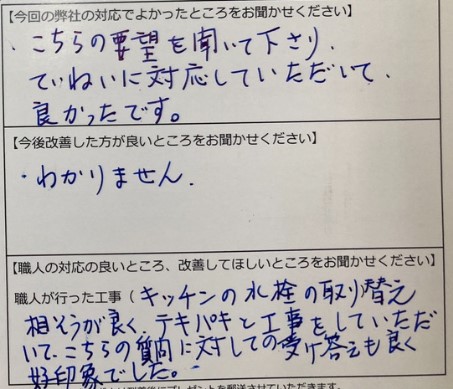 【今回の弊社の対応でよかったところをお聞かせください】
・こちらの要望を聞いて下さり、
ていねいに対応していただいて、
良かったです。
【今後改善した方が良いところをお聞かせください】
・わかりません.
【職人の対応の良いところ、改善してほしいところをお聞かせください】
職人が行った工事（キッチンの水栓の取り替え
相そうが良く、テキパキと工事をしていただ
いて、こちらの質問に対しての受け答えも良く
好印象でした。
プレゼントを郵送させていただきます。